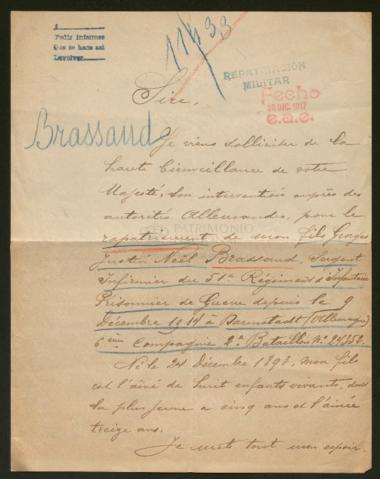 A
Pedir informes
Que se haga así
Devolver
REPATRIACIÓN
MILITAR
Fecho
DIC. 1917
e.a.e.
Sire,
Brassaud
Je viens solliciter de la
haute bienveillance de votre
Majesté, son intervention auprès des
autorités Allemandes, pour le
rapatriement de mon fils Georges
PATRIMONIO
Justin Noël Brassaud, Sergent
Infirmier du 51e Régiment d'Infanterie
Prisonnier de Guerre depuis le 9
Décembre 1914 à Darmstadt (Allemagne)
6ème Compagnie 2e Bataillon No
Né le 24 Décembre 1893, mon fils
est l'aîné de huit enfants vivants, dont
la plus jeune a cinq ans et l'aînée
treize ans.
Je mets tout mon espoir